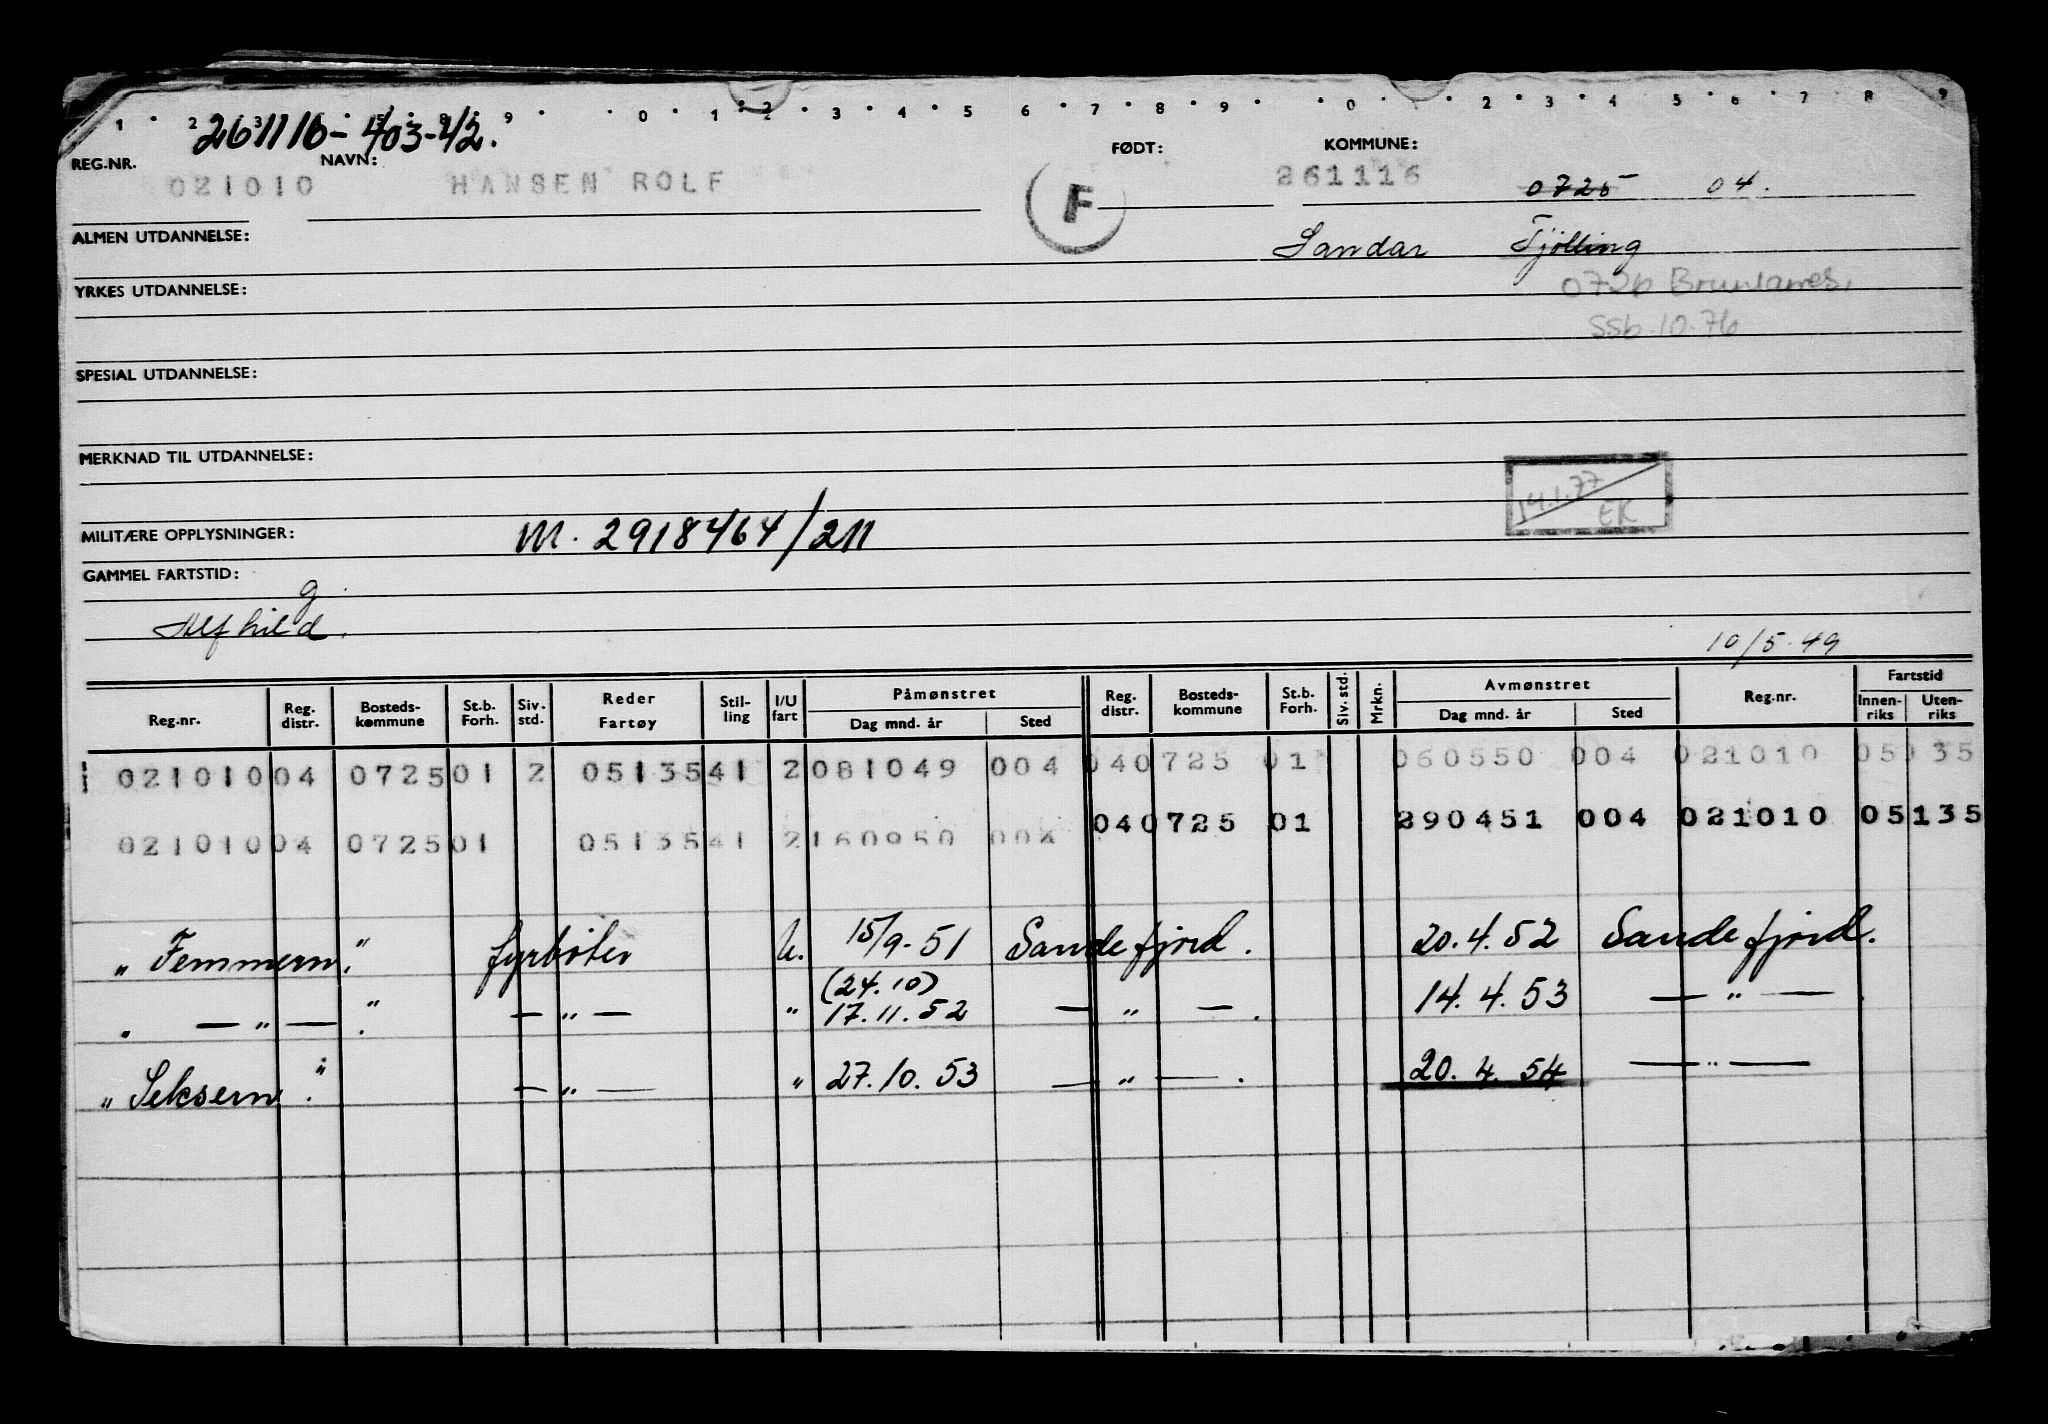 1 2 3 4 5 6 7 8 9 0 1 2 3 4 5 6 7 8 9 0 1 2 3 4 5 6 7 8 9
261116-403-42.
REG.NR. NAVN: FØDT: KOMMUNE:
021010 HANSEN ROLF F 261116 0725 04.
ALMEN UTDANNELSE: Sandar Tjølling
YRKES UTDANNELSE: 0726 Brunlanes,
SSb.10.76
SPESIAL UTDANNELSE:
MERKNAD TIL UTDANNELSE:
14.1.77 EK
MILITÆRE OPPLYSNINGER: M. 2918464/211
GAMMEL FARTSTID:
g.
Alfhild.
10/5.49
Reg.nr. Reg. distr. Bosteds-kommune St.b. Forh. Siv. std. Reder Fartøy Stil-ling I/U fart Påmønstret Dag mnd. år Sted Reg. distr. Bosteds-kommune St.b. Forh. Siv. std. Mrkn. Avmønstret Dag mnd. år Sted Reg.nr. Fartstid Innen-riks Uten-riks
021010 04 0725 01 2 05135 41 2 081049 004 04 0725 01 060550 004 021010 05135
021010 04 0725 01 05135 41 2 160950 004 04 0725 01 290451 004 021010 05135
„ Femmern." fyrbøter u. 15/9-51 Sandefjord. 20.4.52 Sandefjord.
„ — „ — ". — „ — " (24.10) 17.11.52 — „ — . 14.4.53 — „ — .
„ Seksern". — „ — " 27.10.53 — „ — . 20.4.54 — „ —